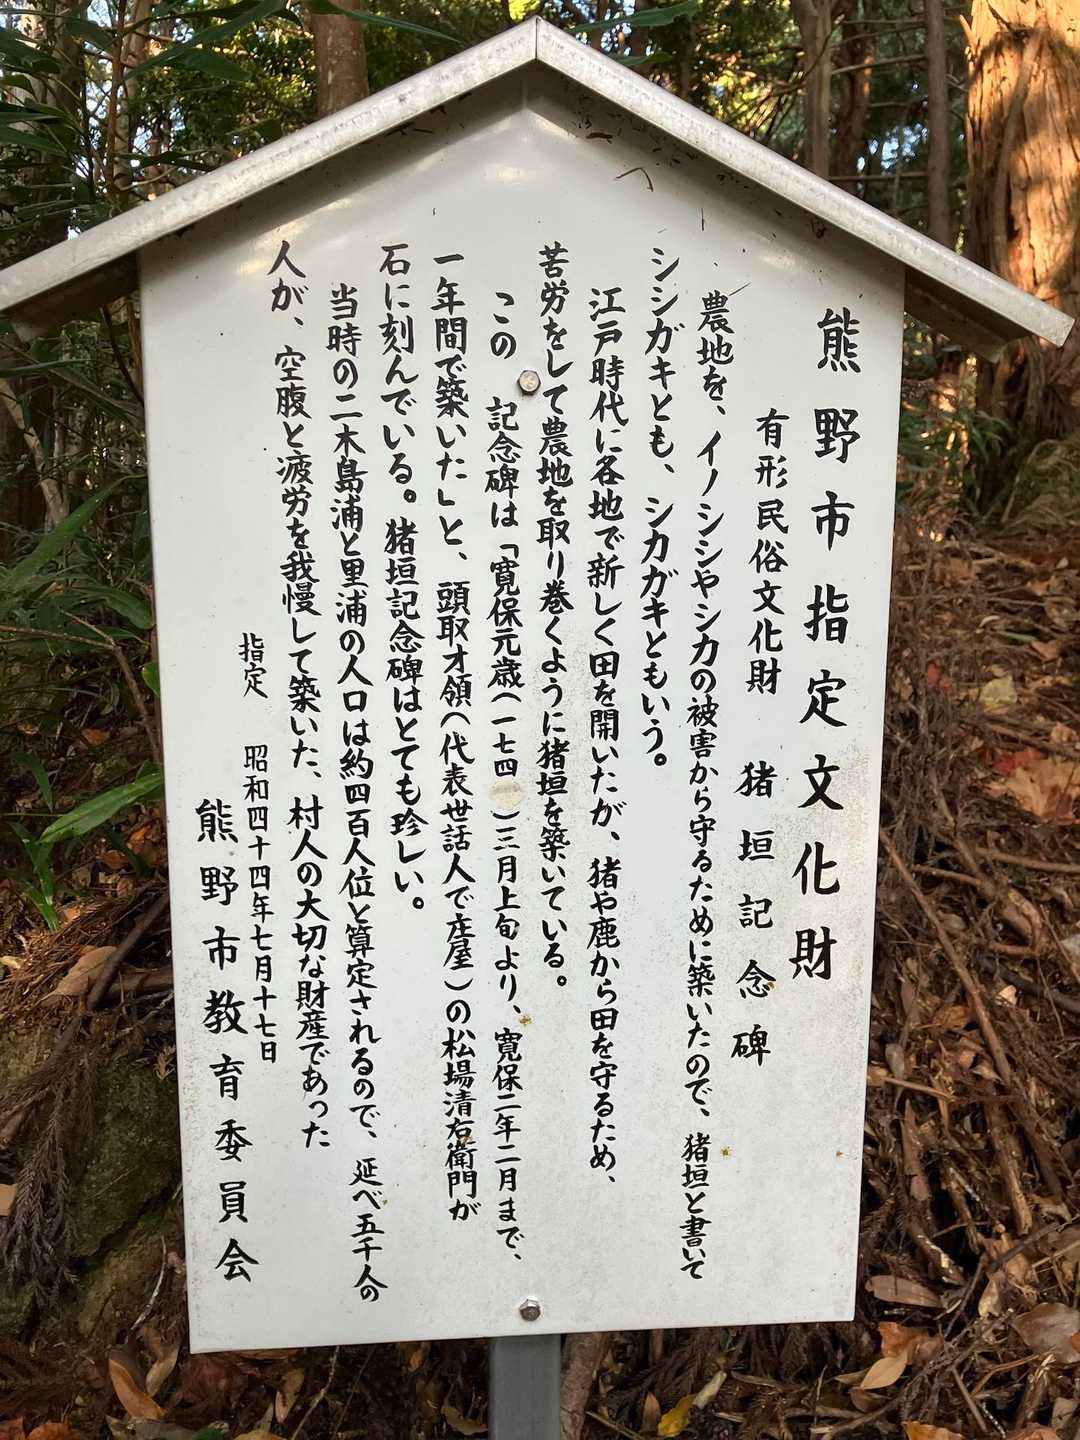 熊野市指定文化財
有形民俗文化財 猪垣記念碑
農地を、イノシシやシカの被害から守るために築いたので、猪垣と書いて
シシガキとも、シカガキともいう。
江戸時代に各地で新しく田を開いたが、猪や鹿から田を守るため、
苦労をして農地を取り巻くように猪垣を築いている。
この 記念碑は「寛保元歳(一七四 )三月上旬より、寛保二年二月まで、
一年間で築いた」と、頭取才領(代表世話人で庄屋)の松場清右衛門が
石に刻んでいる。猪垣記念碑はとても珍しい。
当時の二木島浦と里浦の人口は約四百人位と算定されるので、延べ五千人の
人が、空腹と疲労を我慢して築いた、村人の大切な財産であった
指定 昭和四十四年七月十七日
熊野市教育委員会